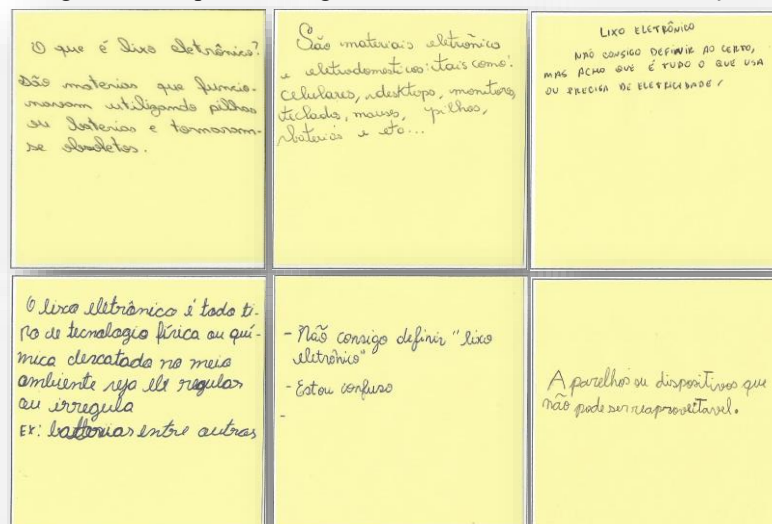 O que é lixo eletrônico?
são materias que funcio-
navam utilizando pilhas
ou baterias e tornaram-
se obsoletos.
São materiais eletrônico
e eletrodomesticos: tais como:
celulares, desktops, monitores,
teclado, mouses, pilhas,
baterias e etc...
LIXO ELETRÔNICO
NÃO CONSIGO DEFINIR AO CERTO,
MAS ACHO QUE É TUDO O QUE USA
OU PRECISA DE ELETRICIDADE.
O lixo eletrônico é todo ti-
po de tecnologia física ou quí-
mica descatada no meio
ambiente seja ele regular
ou irregula
EX: baterias entre outras
- Não consigo definir "lixo
eletrônico"
- Estou confuso
-
Aparelhos ou dispositivos que
não pode ser reaproveitavel.